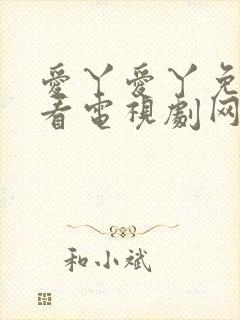 愛丫愛丫免
看電視劇网
和小斌